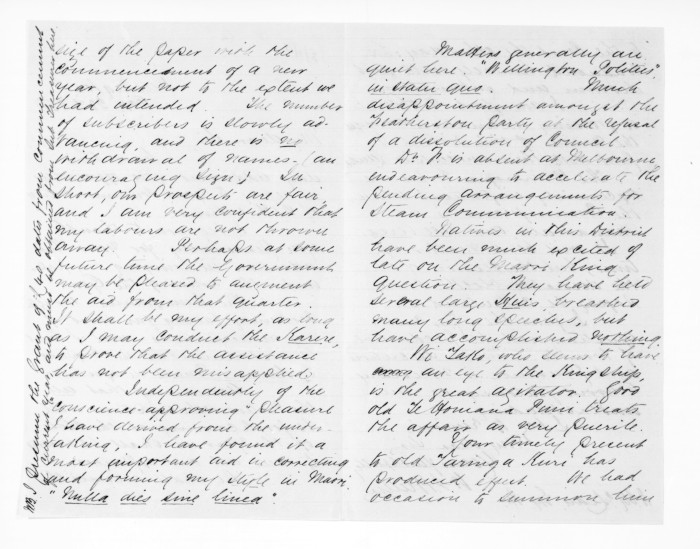 size of the paper with the
commencement of a new
year, but not to the extent we
had intended. The number
of subscribers is slowly ad-
vancing, and there is no
withdrawal of names. (an
encouraging sign.) In
short, our prospects are fair
and I am very confident that
my labours are not thrown
away. Perhaps at some
future time the Government
may be pleased to augment
the aid from that quarter.
It shall be my effort, as long
as I may conduct the Karere,
to prove that the assistance
has not been misapplied.
Independently of the
"conscience-approving" pleasure
I have derived from the under-
taking, I have found it a
most important aid in correcting
and forming my style in Maori.
"Nulla dies sine linea".
NB I presume the grant of £40 dates from commencement
of current year, and must be obtained from Sub Treasurer here
Matters generally are
quiet here. "Wellington Politics"
in statu quo. Much
disappointment amongst the
Featherston party at the refusal
of a dissolution of Council.
Dr. F. is absent at Melbourne,
endeavouring to accelerate the
pending arrangements for
Steam Communication.
Natives in this District
have been much excited of
late on the Maori King
question. They have held
several large Huis, breathed
many long speeches, but
have accomplished nothing.
Wi Tako, who seems to have
an eye to the Kingship,
is the great agitator. Good
old Te Honiana Puni treats
the affair as very puerile.
Your timely present
to old Taringa Kuri has
produced effect. We had
occasion to summon him